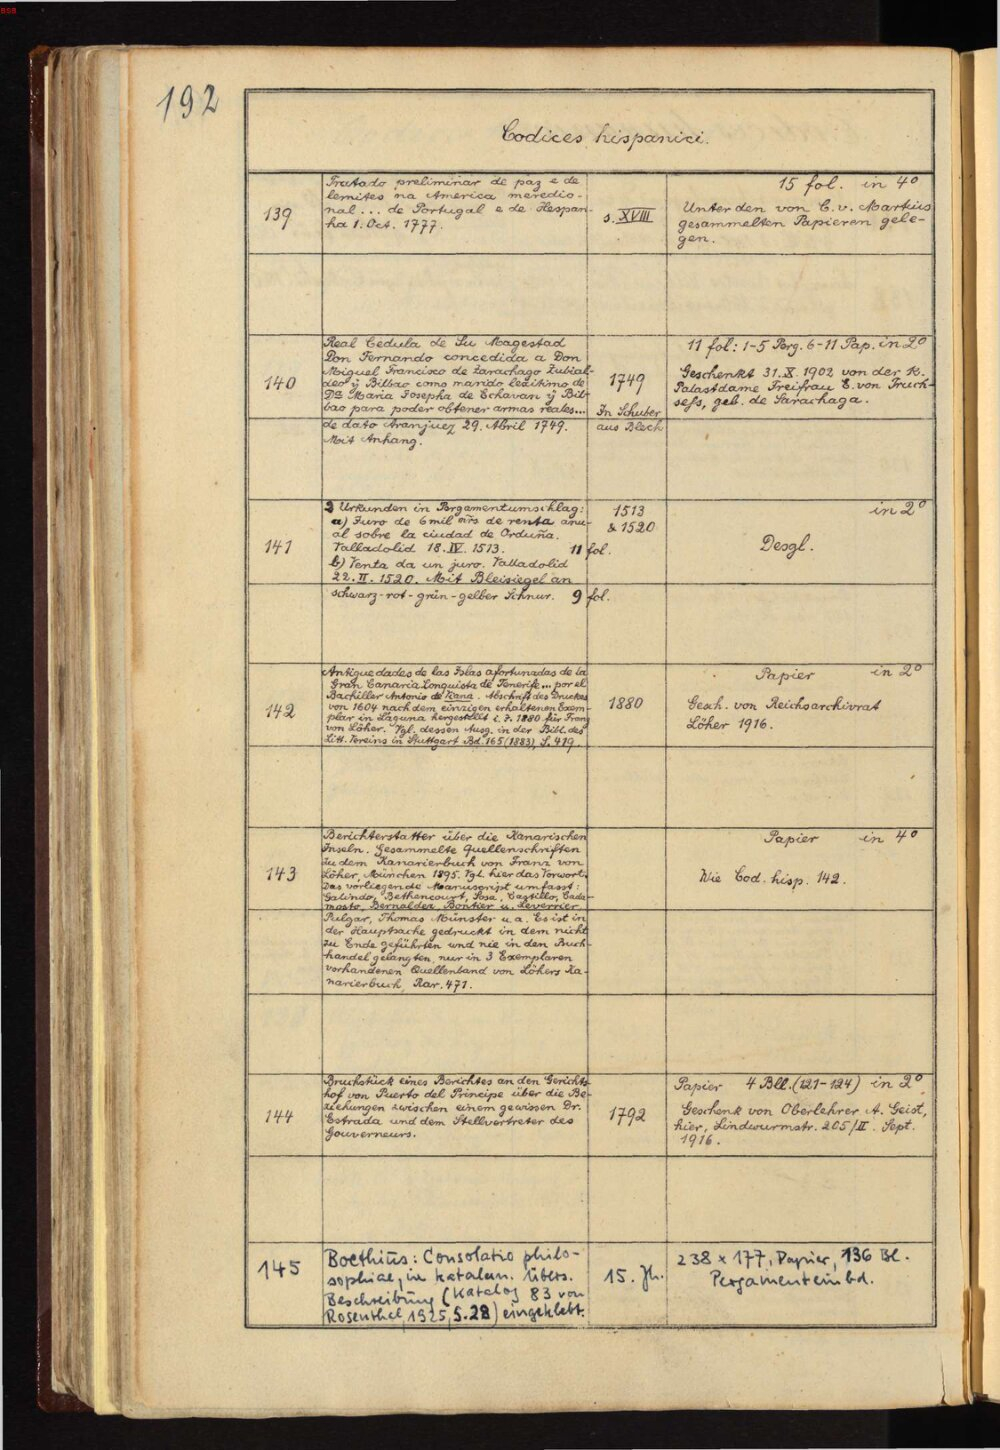 BSB
192
Codices hispanici.
139
Tratado preliminar de paz e de
lemites na America meredio-
nal ... de Portugal e de Hespan-
ha 1. Oct. 1777.
s. XVIII
15 fol. in 4°
Unter den von C. v. Martius
gesammelten Papieren gele-
gen.
140
Real Cedula de Su Magestad
Don Fernando concedida a Don
Miguel Francisco de Zarachago Zubial-
deo ÿ Bilbao como marido legitimo de
Dª Maria Josepha de Echavan ÿ Bil-
bao para poder obtener armas reales...
de dato Aranjuez 29. Abril 1749.
Mit Anhang.
1749
In Schuber
aus Blech
11 fol: 1-5 Perg. 6-11 Pap. in 2°
Geschenkt 31. X. 1902 von der K.
Palastdame Freifrau E. von Truch-
sess, geb. de Sarachaga.
141
2 Urkunden in Prgamentumschlag:
a) Juro de 6 mil mrs de renta anu-
al sobre la ciudad de Orduña.
Valladolid 18. IV. 1513. 11 fol.
b) Venta da un juro. Valladolid
22. II. 1520. Mit Bleisiegel an
schwarz-rot-grün-gelber Schnur. 9 fol.
1513
& 1520
in 2°
Desgl.
142
Antiguedades de las Islas afortunadas de la
Gran Canaria Conquista de Tenerife... por el
Bachiller Antonio de Viana. Abschrift des Druckes
von 1604 nach dem einzigen erhaltenen Exem-
plar in Laguna hergestellt i. J. 1880 für Franz
von Löher. Vgl. dessen Ausg. in der Bibl. des
Litt. Vereins in Stuttgart Bd. 165 (1883), S. 419.
1880
Papier in 2°
Gesch. von Reichsarchivrat
Löher 1916.
143
Berichterstatter über die Kanarischen
Inseln. Gesammelte Quellenschriften
zu dem Kanarierbuch von Franz von
Löher, München 1895. Vgl. hier das Vorwort.
Das vorliegende Manuscript umfasst:
Galindo, Bethencourt, Sosa, Castillo, Cada-
mosto, Bernaldez, Bontier u. Leverrier,
Pulgar, Thomas Münster u. a. Es ist in
der Hauptsache gedruckt in dem nicht
zu Ende geführten und nie in den Buch-
handel gelangten, nur in 3 Exemplaren
vorhandenen Quellenband von Löhers Ka-
narierbuch, Rar. 471.
Papier in 4°
Wie Cod. hisp. 142.
144
Bruchstück eines Berichtes an den Gerichts-
hof von Puerto del Principe über die Be-
ziehungen zwischen einem gewissen Dr.
Estrada und dem Stellvertreter des
Gouverneurs.
1792
Papier 4 Bll. (121-124) in 2°
Geschenk von Oberlehrer A. Geist,
hier, Lindwurmstr. 205/II. Sept.
1916.
145
Boethius: Consolatio philo-
sophiae, in katalan. Übers.
Beschreibung (Katalog 83 von
Rosenthal, 1925, S. 28) eingeklebt.
15. Jh.
238 x 177, Papier, 136 Bl.
Pergamenteinbd.